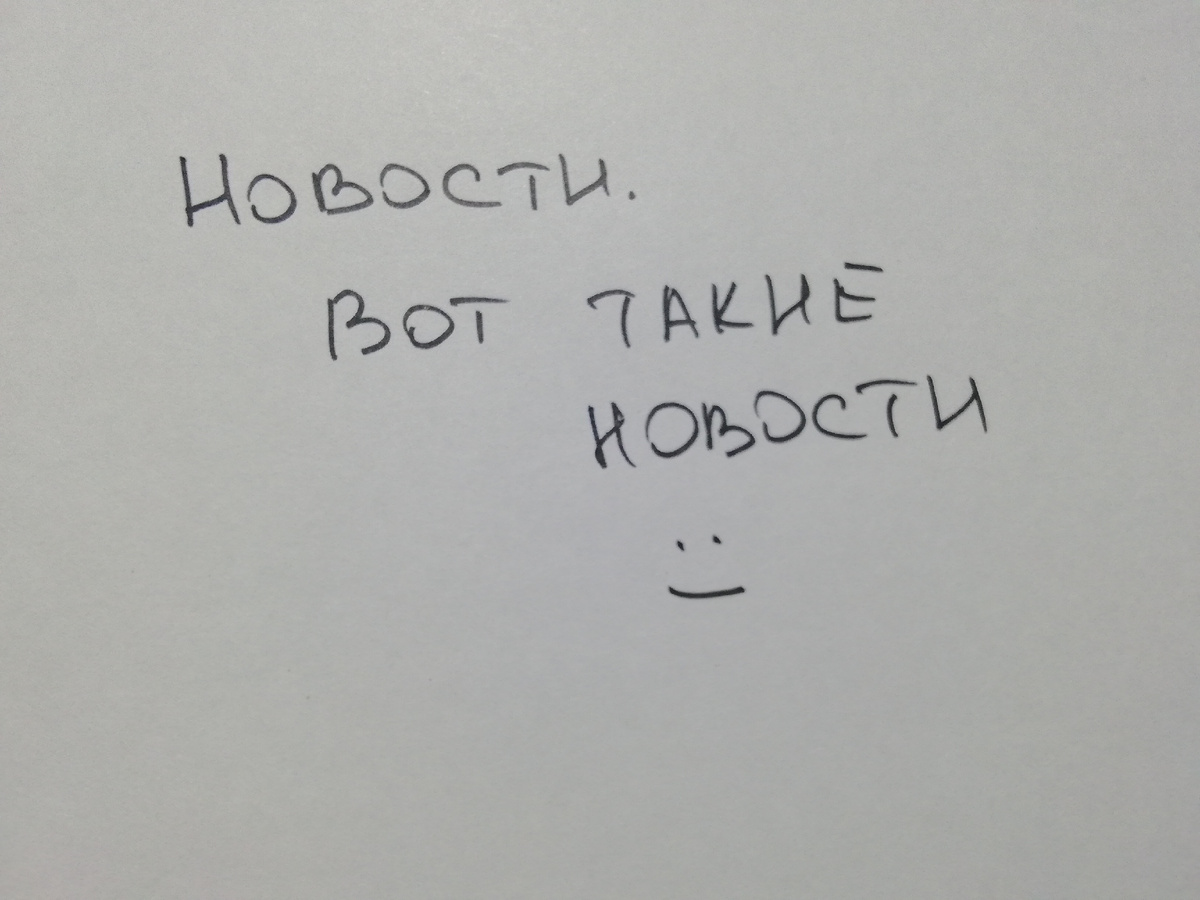 Новости.
Вот такие
новости